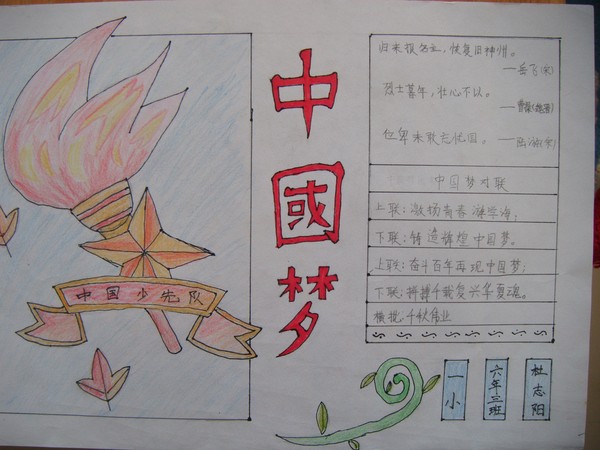 中國梦
中国少先队
归来报名业，恢复旧神州。
——岳飞(宋)
烈士暮年，壮心不以。
——曹操(魏晋)
位卑未敢忘忧国。——陆游(宋)
中国梦对联
上联：激扬青春 学海；
下联：铸造辉煌中国梦。
上联：奋斗百年再现中国梦；
下联：拼搏千载复兴华夏魂。
横批：千秋伟业
一小
六年三班
杜志阳